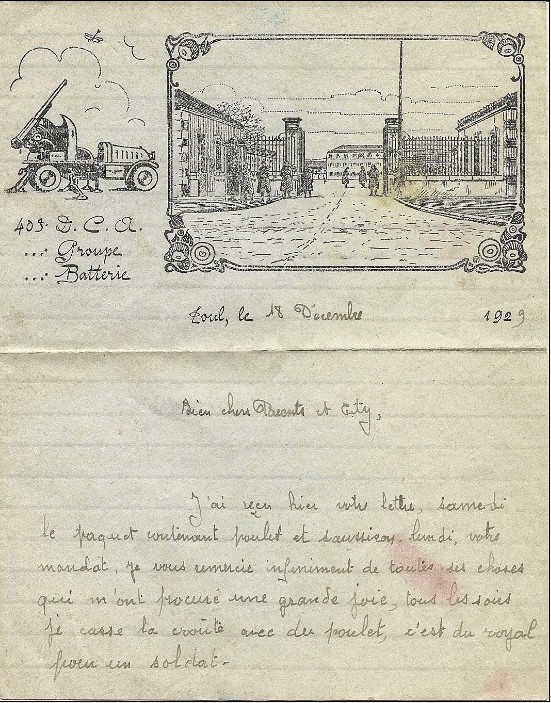 403e D. C. A.
... Groupe
... Batterie
Toul, le 18 Décembre 1929
Bien chers Parents et
J'ai reçu hier votre lettre, samedi
le paquet contenant poulet et saucisson, lundi, votre
mandat, je vous remercie infiniment de toutes ses choses
qui m'ont procuré une grande joie, tous les soirs
je casse la croûte avec du poulet, c'est du royal
pour un soldat-